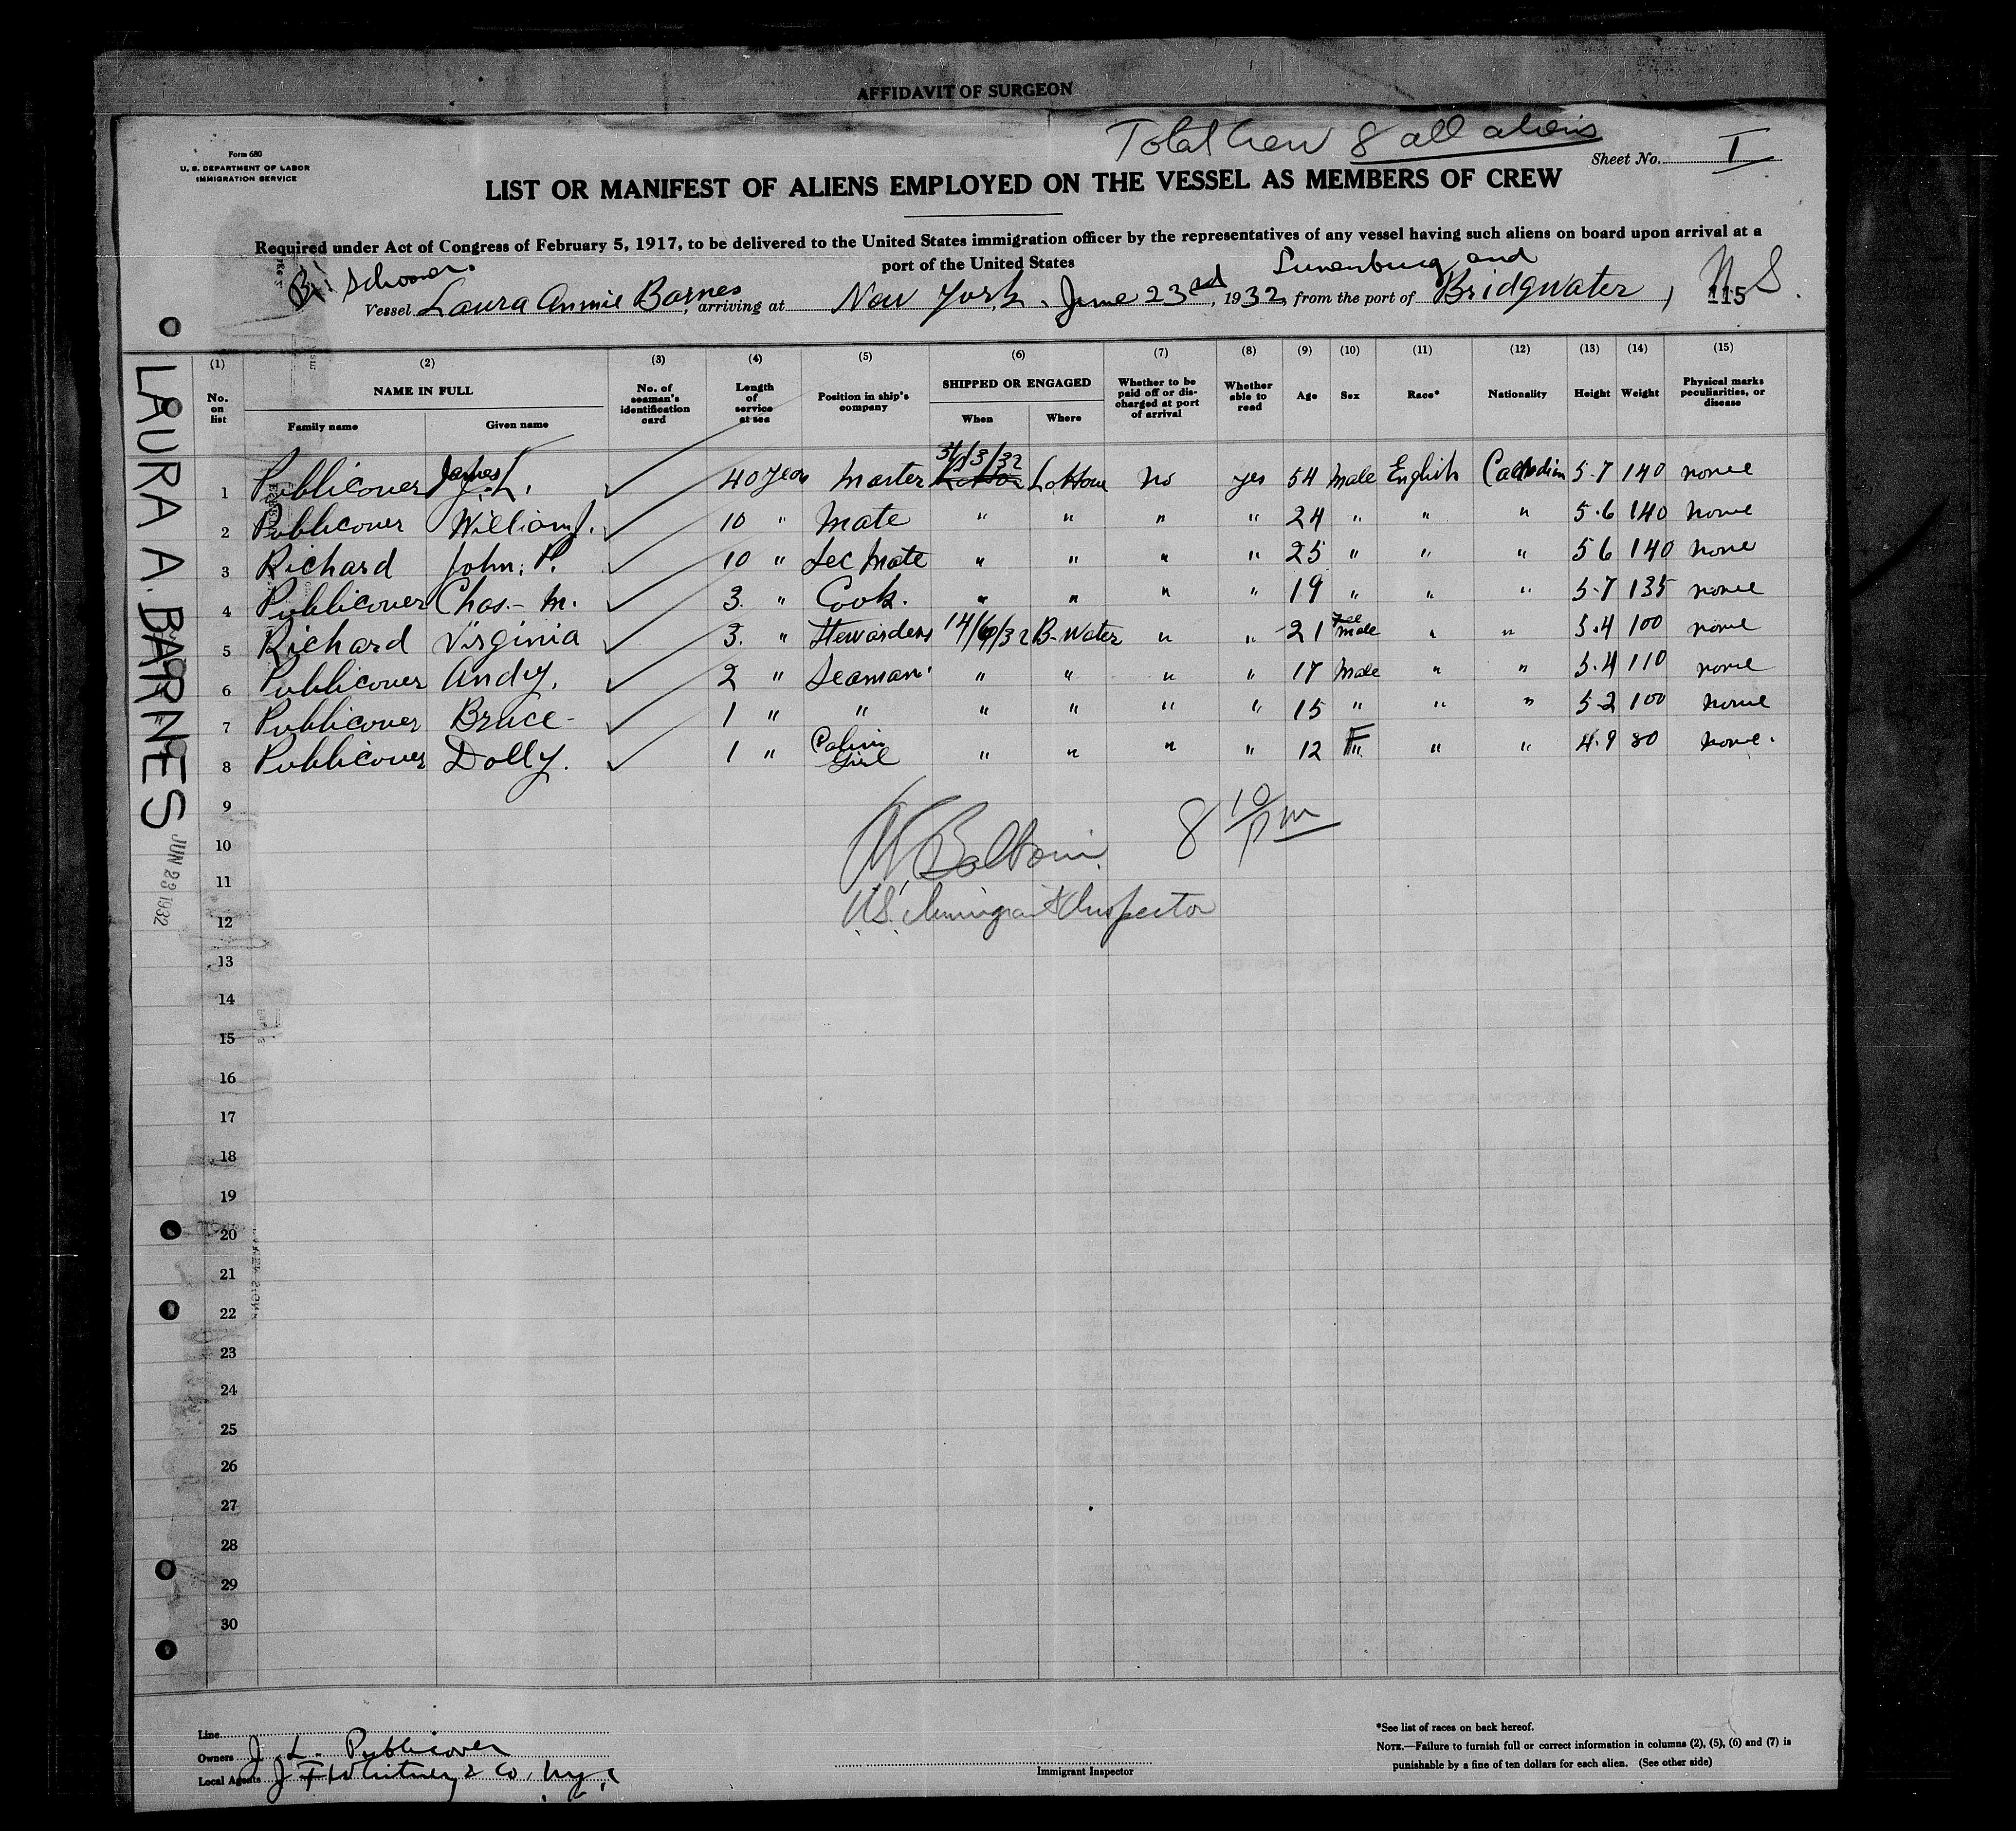 AFFIDAVIT OF SURGEON
Total Crew 8 all aliens
Form 680
U. S. DEPARTMENT OF LABOR
IMMIGRATION SERVICE
Sheet No. I
LIST OR MANIFEST OF ALIENS EMPLOYED ON THE VESSEL AS MEMBERS OF CREW
Required under Act of Congress of February 5, 1917, to be delivered to the United States immigration officer by the representatives of any vessel having such aliens on board upon arrival at a
port of the United States
Br. Schooner. Lunenburg and
Vessel Laura Annie Barnes, arriving at New York, June 23rd, 1932, from the port of Bridgwater, N S.
115
LAURA A. BARNES JUN 23 1932
(1) (2) (3) (4) (5) (6) (7) (8) (9) (10) (11) (12) (13) (14) (15)
No. on list
NAME IN FULL
Family name Given name
No. of seaman's identification card
Length of service at sea
Position in ship's company
SHIPPED OR ENGAGED
When Where
Whether to be paid off or discharged at port of arrival
Whether able to read
Age Sex Race* Nationality Height Weight
Physical marks peculiarities, or disease
1 Publicover James L. 40 years Master 31/3/32 LaHave No yes 54 male English Canadian 5-7 140 none
2 Publicover William J. 10 " Mate " " " " 24 " " " 5-6 140 none
3 Richard John. P. 10 " Sec Mate " " " " 25 " " " 5 6 140 none
4 Publicover Chas.- M. 3. " Cook. " " " " 19 " " " 5-7 135 none
5 Richard Virginia 3. " Stewardess 14/6/32 B-Water " " 21 Female " " 5.4 100 none
6 Publicover Andy. 2 " Seaman " " " " 17 Male " " 5.4 110 none
7 Publicover Bruce- 1 " " " " " " 15 " " " 5-2 100 none
8 Publicover Dolly. 1 " Cabin Girl " " " " 12 F " " 4.9 80 none.
9
10
11
12
13
14
15
16
17
18
19
20
21
22
23
24
25
26
27
28
29
30
8 10/pm
U.S. Immigrant Inspector
Line
Owners J. L. Publicover
Local Agents J F Whitney & Co, N.Y.
Immigrant Inspector
*See list of races on back hereof.
NOTE.—Failure to furnish full or correct information in columns (2), (5), (6) and (7) is
punishable by a fine of ten dollars for each alien. (See other side)